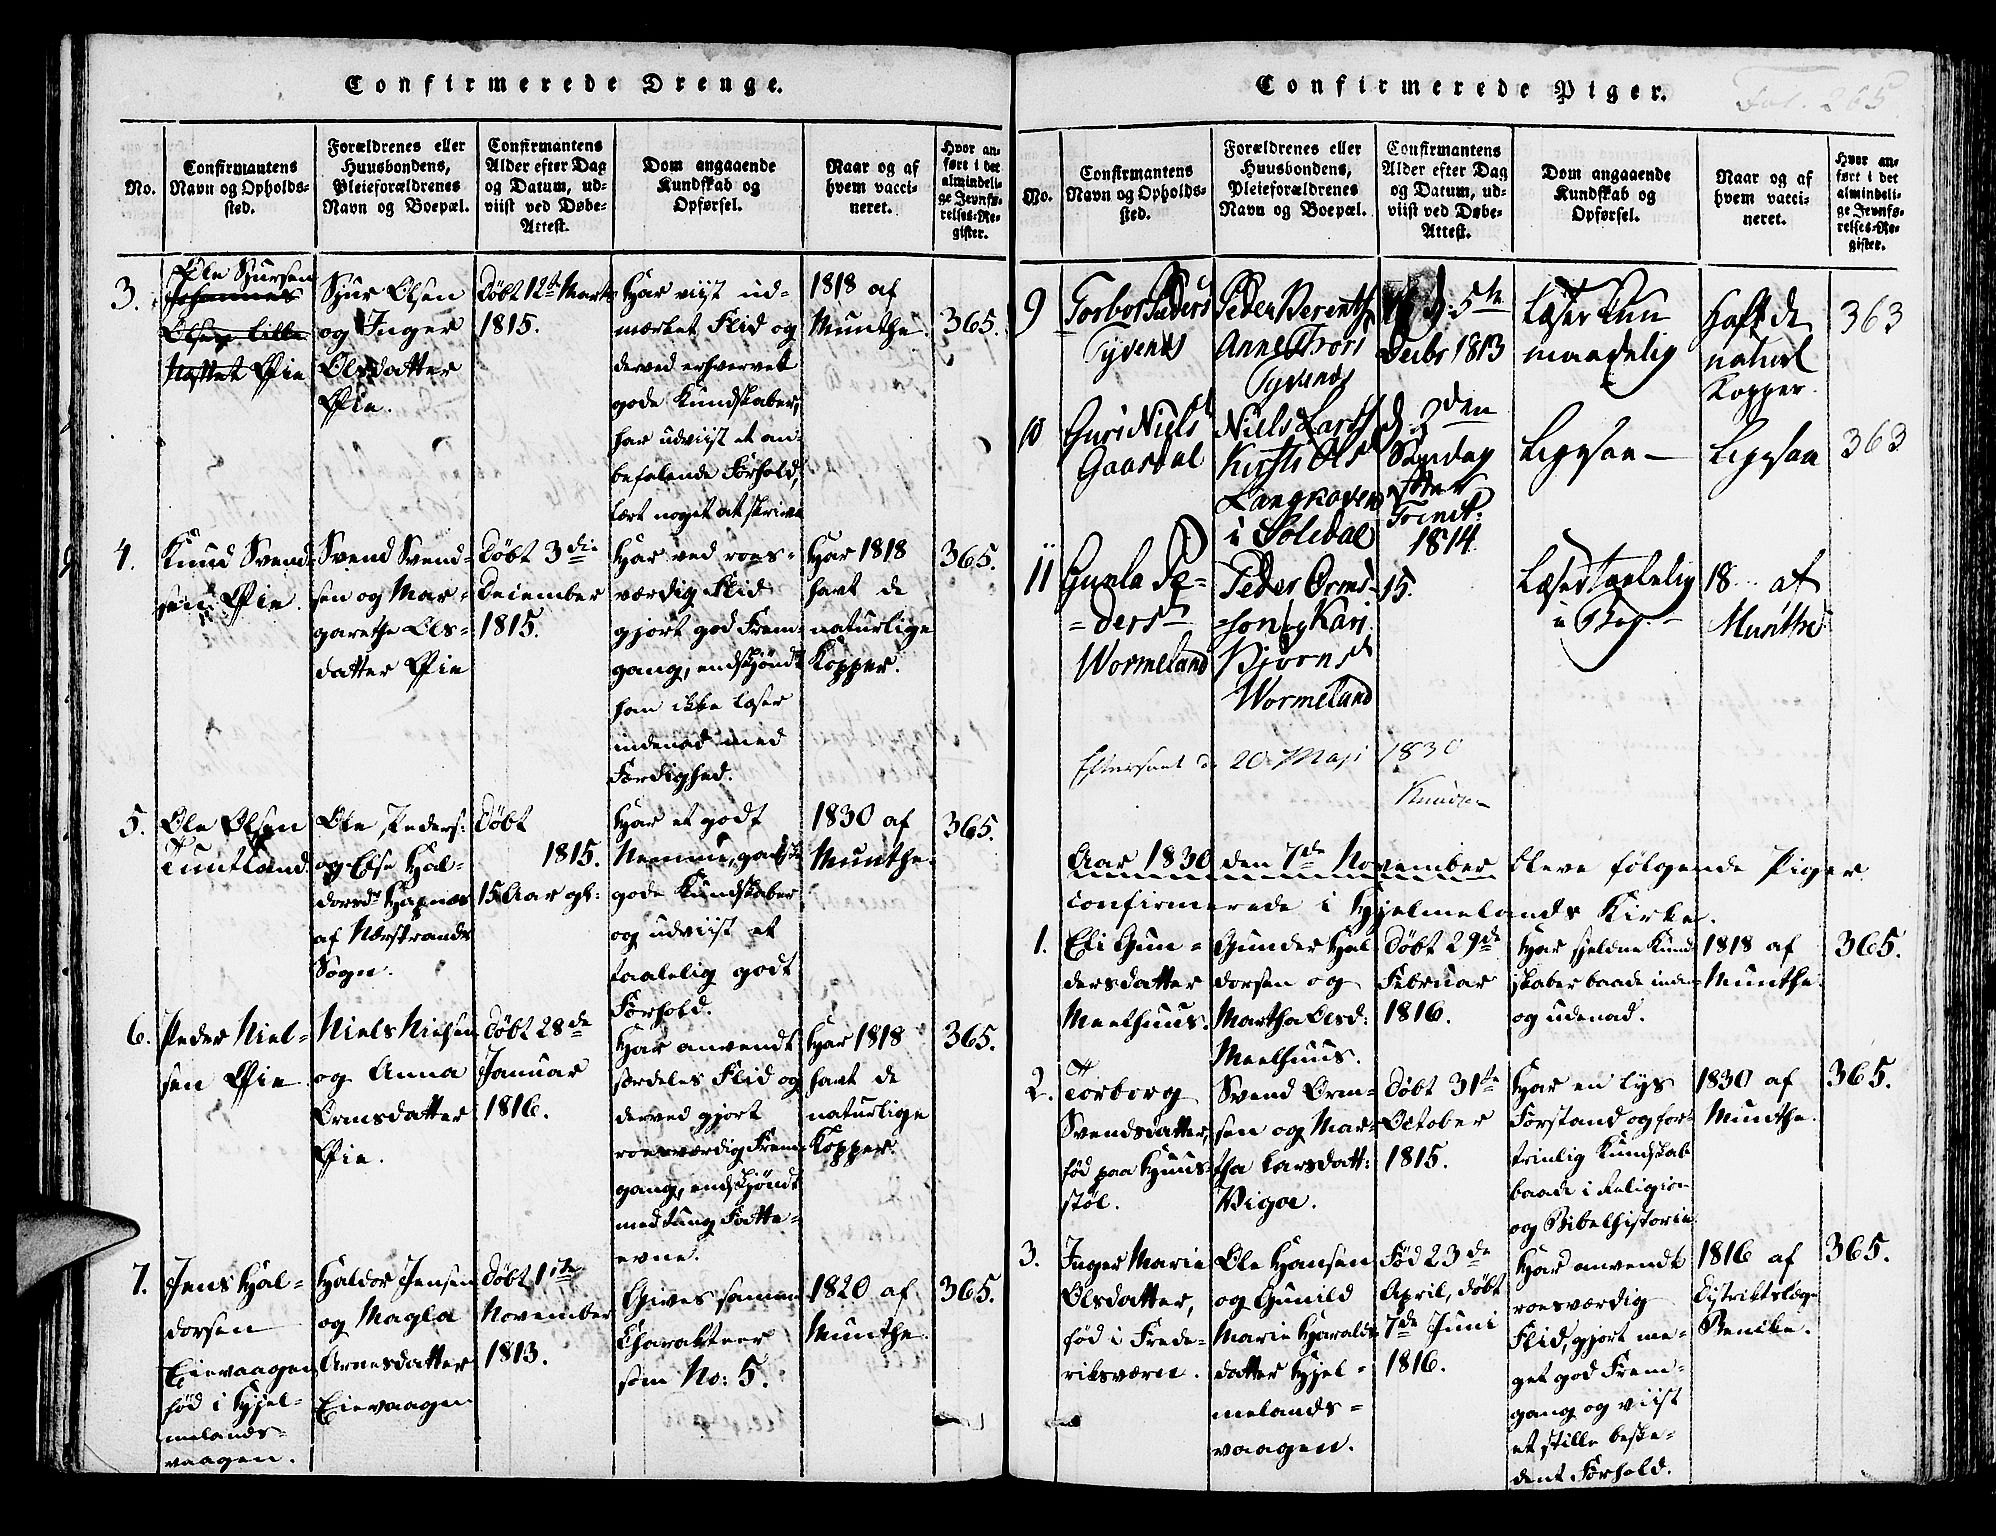 Confirmerede Drenge.
No.
Confirmantens
Navn og Opholds-
sted.
Forældrenes eller
Huusbondens,
Pleieforældrenes
Navn og Boepæl.
Confirmantens
Alder efter Dag
og Datum, ud-
viist ved Døbe-
Attest.
Dom angaaende
Kundskab og
Opførsel.
Naar og af
hvem vacci-
neret.
Hvor an-
ført i det
almindeli-
ge Jevnfø-
relses-Re-
gister.
3.
Ole Sjursen
Johannes
Olsen lille
Øie
Sjur Olsen
og Inger
Olsdatter
Øie.
Døbt 12te Marts
1815.
Har viist ud-
mærket Flid og
derved erhvervet
gode Kundskaber,
har udviist et an-
befalende Forhold,
lært noget at skrive
1818 af
Munthe.
365.
4.
Knud Svend-
sen Øie.
Svend Svend-
sen og Mar-
garethe Ols-
datter Øie
Døbt 3die
December
1815.
Har ved roes-
værdig Flid
gjort god Frem-
gang, endskjøndt
han ikke læser
indenad med
Færdighed.
Har 1818
havt de
naturlige
Kopper.
365.
5.
Ole Olsen
Tuntland.
Ole Peders:
og Else Hal-
dorsdr Hapnes
af Nærstrands
Sogn.
Døbt
1815.
15 Aar gl:
Har et godt
Nemme, ganske
gode Kundskaber
og udviist et
taalelig godt
Forhold.
1830 af
Munthe.
365.
6.
Peder Niel-
sen Øie
Niels Nielsen
og Anna
Ormsdatter
Øie.
Døbt 28de
Januar
1816.
Har anvendt
særdeles Flid og
derved gjort
roesværdig Frem-
gang, endskjøndt
med tung Fatte-
evne.
Har 1818
havt de
naturlige
Kopper.
365.
7.
Jens Hal-
dorsen
Eievaagen
fød i Hjel-
melands-
vaagen.
Haldor Jensen
og Magla
Arnesdatter
Eievaagen
Døbt 1ste
November
1813.
Gives samme
Charakteer
som No: 5.
1820 af
Munthe.
365.
Confirmerede Piger.
Fol. 265
No.
Confirmantens
Navn og Opholds-
sted.
Forældrenes eller
Huusbondens,
Pleieforældrenes
Navn og Boepæl.
Confirmantens
Alder efter Dag
og Datum, ud-
viist ved Døbe-
Attest.
Dom angaaende
Kundskab og
Opførsel.
Naar og af
hvem vacci-
neret.
Hvor an-
ført i det
almindeli-
ge Jevnfø-
relses-Re-
gister.
9
Torbor Peders
Tysends
Peder Berents
Anne Thors
Tysends
5te
Decbr 1813
Læser kun
maadelig
Haft de
naturl
Kopper.
363
10
Guri Niels
Gaasdal
Niels Larss
Kirsti Ols
Langhaven
i Soledal
d 2den
Søndag
efter
Trinit:
1814.
Ligesaa -
Ligesaa
363
11
Gunla Pe-
=ders
Wormeland
Peder Orms-
=son og Kari
Bjørns
Wormeland
15.
Læser taalelig
i Bog. -
18.. af
Munthe
Efterseet d. 20 Maji 1830
Knudsen
Aar 1830 den 7de November bleve følgende Piger
confirmerede i Hjelmelands Kirke.
1.
Eli Gun-
dersdatter
Meelhuus.
Gunder Hal
dorsen og
Martha Olsd:
Meelhuus.
Døbt 29de
Februar
1816.
Har sjeldne Kund
skaber baade inden
og udenad.
1818 af
Munthe.
365.
2.
Torborg
Svendsdatter,
fød paa Huus-
støl.
Svend Orm-
sen og Mar-
tha Larsdatt:
Vigøe.
Døbt 31te
October
1815.
Har en lys
Forstand og for-
trinlig Kundskab
baade i Religion
og Bibelhistorie
1830 af
Munthe.
365.
3.
Inger Marie
Olsdatter,
fød i Frede-
riksværn.
Ole Hansen
og Gunild
Marie Haralds
datter Hjel-
melands-
vaagen.
Fød 23de
April, døbt
7de Juni
1816.
Har anvendt
roesværdig
Flid, gjort me-
get god Frem-
gang og viist
et stille beske-
dent Forhold.
1816 af
Distriktslæge
Bencke.
365.